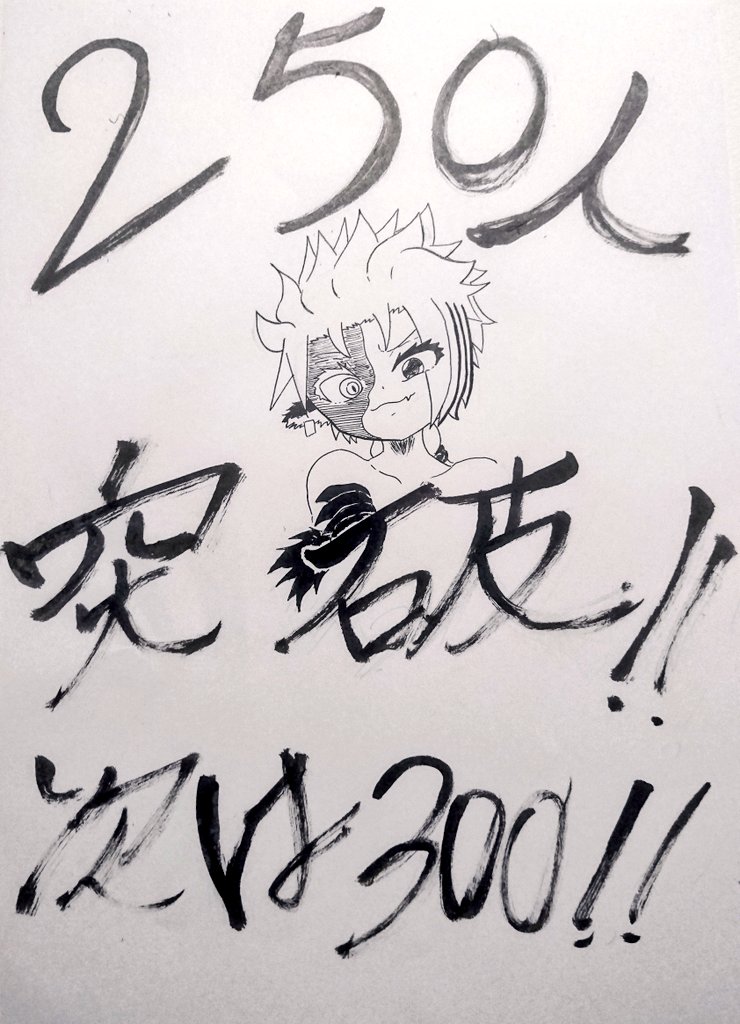 250人
突破!!
次は300!!